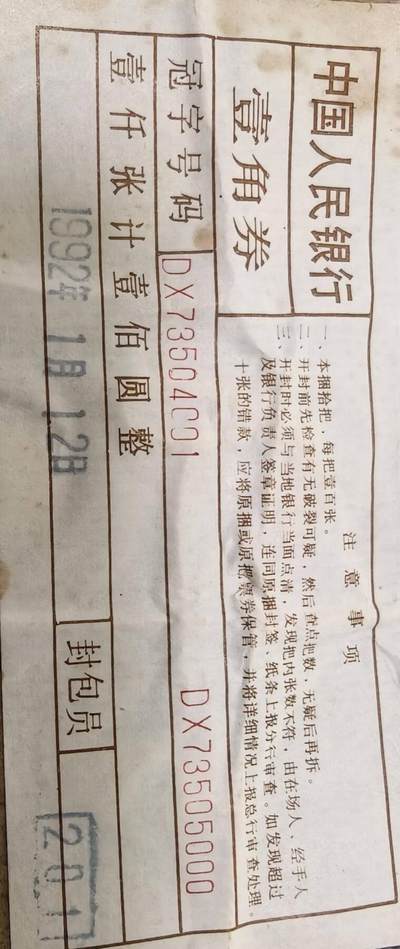 中国人民银行
壹角券
冠字号码
DX73504001
DX73505000
壹仟张计壹佰圆整
1992年1月12日
封包员
201
注意事项
一、本捆拾把，每把壹百张。
二、开封前先检查有无破裂可疑，然后查点把数，无疑后再拆。
三、开封时必须与当地银行当面点清，发现把内张数不符，由在场人、经手人
及银行负责人签章证明，连同原捆封签、纸条上报分行审查。如发现超过
十张的错款，应将原捆或原把票券保管，并将详细情况上报总行审查处理。